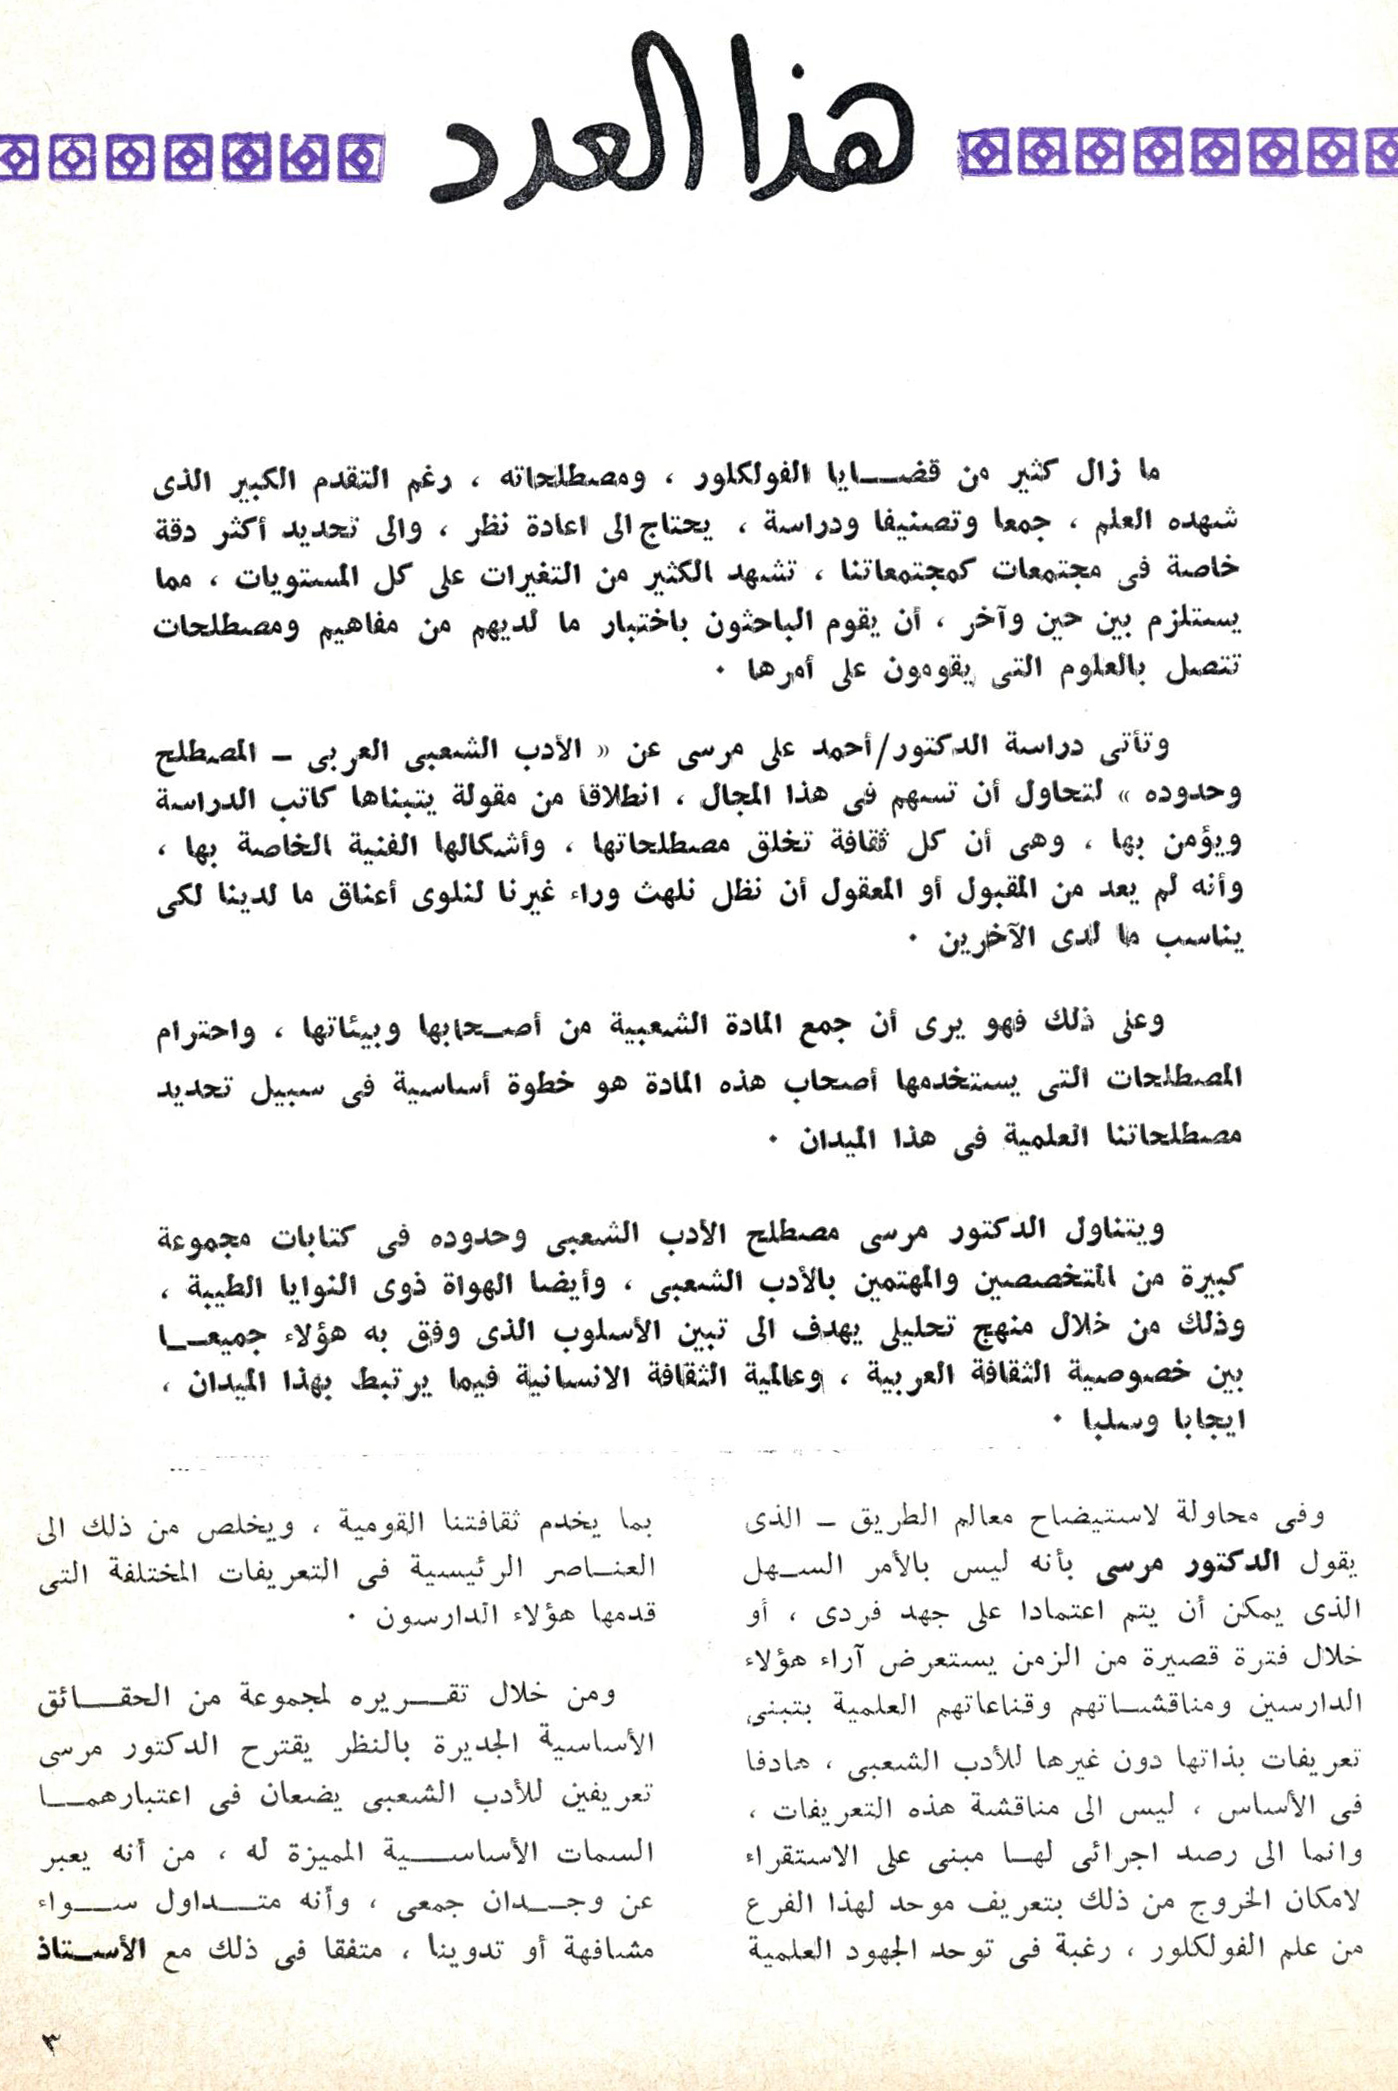 هذا العدد
ما زال كثير من قضـــايا الفولكلور ، ومصطلحاته ، رغم التقدم الكبير الذى
شهده العلم ، جمعا وتصنيفا ودراسة ، يحتاج الى اعادة نظر ، والى تحديد أكثر دقة
خاصة فى مجتمعات كمجتمعاتنا ، تشهد الكثير من التغيرات على كل المستويات ، مما
يستلزم بين حين وآخر ، أن يقوم الباحثون باختبار ما لديهم من مفاهيم ومصطلحات
تتصل بالعلوم التى يقومون على أمرها ٠
وتأتى دراسة الدكتور/أحمد على مرسى عن « الأدب الشعبى العربى ـ المصطلح
وحدوده » لتحاول أن تسهم فى هذا المجال ، انطلاقا من مقولة يتبناها كاتب الدراسة
ويؤمن بها ، وهى أن كل ثقافة تخلق مصطلحاتها ، وأشكالها الفنية الخاصة بها ،
وأنه لم يعد من المقبول أو المعقول أن نظل نلهث وراء غيرنا لنلوى أعناق ما لدينا لكى
يناسب ما لدى الآخرين ٠
وعلى ذلك فهو يرى أن جمع المادة الشعبية من أصـحابها وبيئاتها ، واحترام
المصطلحات التى يستخدمها أصحاب هذه المادة هو خطوة أساسية فى سبيل تحديد
مصطلحاتنا العلمية فى هذا الميدان ٠
ويتناول الدكتور مرسى مصطلح الأدب الشعبى وحدوده فى كتابات مجموعة
كبيرة من المتخصصين والمهتمين بالأدب الشعبى ، وأيضا الهواة ذوى النوايا الطيبة ،
وذلك من خلال منهج تحليلى يهدف الى تبين الأسلوب الذى وفق به هؤلاء جميعـــا
بين خصوصية الثقافة العربية ، وعالمية الثقافة الانسانية فيما يرتبط بهذا الميدان ،
ايجابا وسلبا ٠
وفى محاولة لاستيضاح معالم الطريق ـ الذى
يقول الدكتور مرسى بأنه ليس بالأمر الســهل
الذى يمكن أن يتم اعتمادا على جهد فردى ، أو
خلال فترة قصيرة من الزمن يستعرض آراء هؤلاء
الدارسين ومناقشــاتهم وقناعاتهم العلمية بتبنى
تعريفات بذاتها دون غيرها للأدب الشعبى ، هادفا
فى الأساس ، ليس الى مناقشة هذه التعريفات ،
وانما الى رصد اجرائى لهــا مبنى على الاستقراء
لامكان الخروج من ذلك بتعريف موحد لهذا الفرع
من علم الفولكلور ، رغبة فى توحد الجهود العلمية
بما يخدم ثقافتنا القومية ، ويخلص من ذلك الى
العنــاصر الرئيسية فى التعريفات المختلفة التى
قدمها هؤلاء الدارسون ٠
ومن خلال تقــريره لمجموعة من الحقــائق
الأساسية الجديرة بالنظر يقترح الدكتور مرسى
تعريفين للأدب الشعبى يضعان فى اعتبارهمـــا
السمات الأساســـية المميزة له ، من أنه يعبر
عن وجــدان جمعى ، وأنه متــداول ســواء
مشافهة أو تدوينا ، متفقا فى ذلك مع الأســتاذ
٣